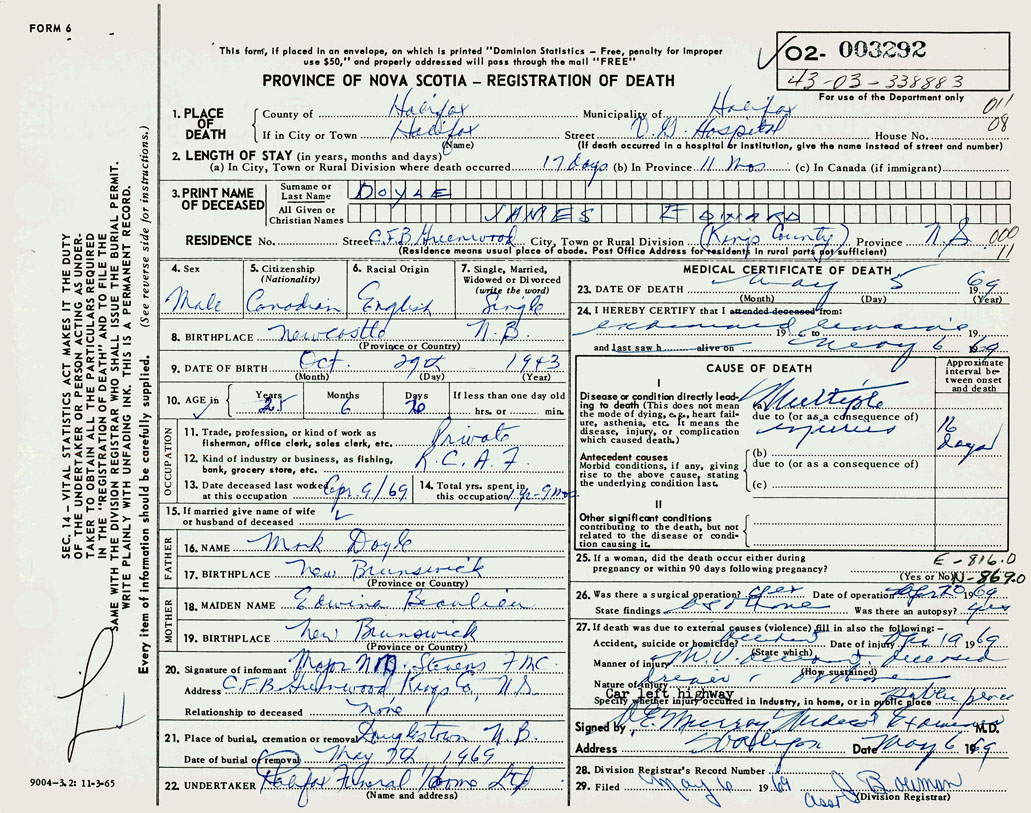 FORM 6
This form, if placed in an envelope, on which is printed "Dominion Statistics – Free, penalty for improper
use $50," and properly addressed will pass through the mail "FREE"
PROVINCE OF NOVA SCOTIA – REGISTRATION OF DEATH
✓ 02- 003292
43-03-338883
For use of the Department only
011
08
1. PLACE OF DEATH
County of Halifax Municipality of Halifax
If in City or Town Halifax Street V.G. Hospital House No.
(Name) (If death occurred in a hospital or institution, give the name instead of street and number)
2. LENGTH OF STAY (in years, months and days)
(a) In City, Town or Rural Division where death occurred 17 days (b) In Province 11 mos (c) In Canada (if immigrant)
3. PRINT NAME OF DECEASED
Surname or Last Name DOYLE
All Given or Christian Names JAMES EDWARD
RESIDENCE No. Street C.F.B. Greenwood City, Town or Rural Division (Kings County) Province N.S. 000
(Residence means usual place of abode. Post Office Address for residents in rural parts not sufficient) 11
4. Sex Male
5. Citizenship (Nationality) Canadian
6. Racial Origin English
7. Single, Married, Widowed or Divorced (write the word) Single
8. BIRTHPLACE Newcastle N.B.
(Province or Country)
9. DATE OF BIRTH Oct. 29th 1943
(Month) (Day) (Year)
10. AGE in Years Months Days If less than one day old
✓ 25 6 hrs. or min.
OCCUPATION
11. Trade, profession, or kind of work as fisherman, office clerk, sales clerk, etc. Private
12. Kind of industry or business, as fishing, bank, grocery store, etc. R.C.A.F.
13. Date deceased last worked at this occupation Apr. 9/69
14. Total yrs. spent in this occupation 1 yr-9mos
15. If married give name of wife or husband of deceased
FATHER
16. NAME Mark Doyle
17. BIRTHPLACE New Brunswick
(Province or Country)
MOTHER
18. MAIDEN NAME Edwina Beaulieu
19. BIRTHPLACE New Brunswick
(Province or Country)
20. Signature of informant Major Stevens
Address C.F.B. Greenwood Kings Co., N.S.
Relationship to deceased None
21. Place of burial, cremation or removal Douglastown N.B.
Date of burial or removal May 7th 1969
22. UNDERTAKER Halifax Funeral Home Ltd
(Name and address)
MEDICAL CERTIFICATE OF DEATH
23. DATE OF DEATH May 5 1969
(Month) (Day) (Year)
24. I HEREBY CERTIFY that I attended deceased from:
examined remains 19 to 19
and last saw h alive on May 6 1969
CAUSE OF DEATH
Approximate interval between onset and death
I
Disease or condition directly leading to death (This does not mean the mode of dying, e.g., heart failure, asthenia, etc. It means the disease, injury, or complication which caused death.)
(a) Multiple
due to (or as a consequence of)
injuries
16 days
Antecedent causes
Morbid conditions, if any, giving rise to the above cause, stating the underlying condition last.
(b)
due to (or as a consequence of)
(c)
II
Other significant conditions contributing to the death, but not related to the disease or condition causing it.
25. If a woman, did the death occur either during pregnancy or within 90 days following pregnancy?
(Yes or No)
E-816.0
N-869.0
26. Was there a surgical operation? yes Date of operation Apr 20 1969
State findings as above Was there an autopsy? yes
27. If death was due to external causes (violence) fill in also the following:–
Accident, suicide or homicide? Accident Date of injury Apr 19 1969
(State which)
Manner of injury M.V. accident, deceased
(How sustained)
Nature of injury driver
Car left highway
Specify whether injury occurred in industry, in home, or in public place Public place
Signed by E. Murray Medical Examiner M.D.
Address Halifax Date May 6 1969
28. Division Registrar's Record Number
29. Filed May 6 1969 J Bowman
(Division Registrar)
SEC. 14 – VITAL STATISTICS ACT MAKES IT THE DUTY
OF THE UNDERTAKER OR PERSON ACTING AS UNDER-
TAKER TO OBTAIN ALL THE PARTICULARS REQUIRED
IN THE "REGISTRATION OF DEATH" AND TO FILE THE
SAME WITH THE DIVISION REGISTRAR WHO SHALL ISSUE THE BURIAL PERMIT.
WRITE PLAINLY WITH UNFADING INK. THIS IS A PERMANENT RECORD.
Every item of information should be carefully supplied. (See reverse side for instructions.)
9004-3.2: 11-3-65